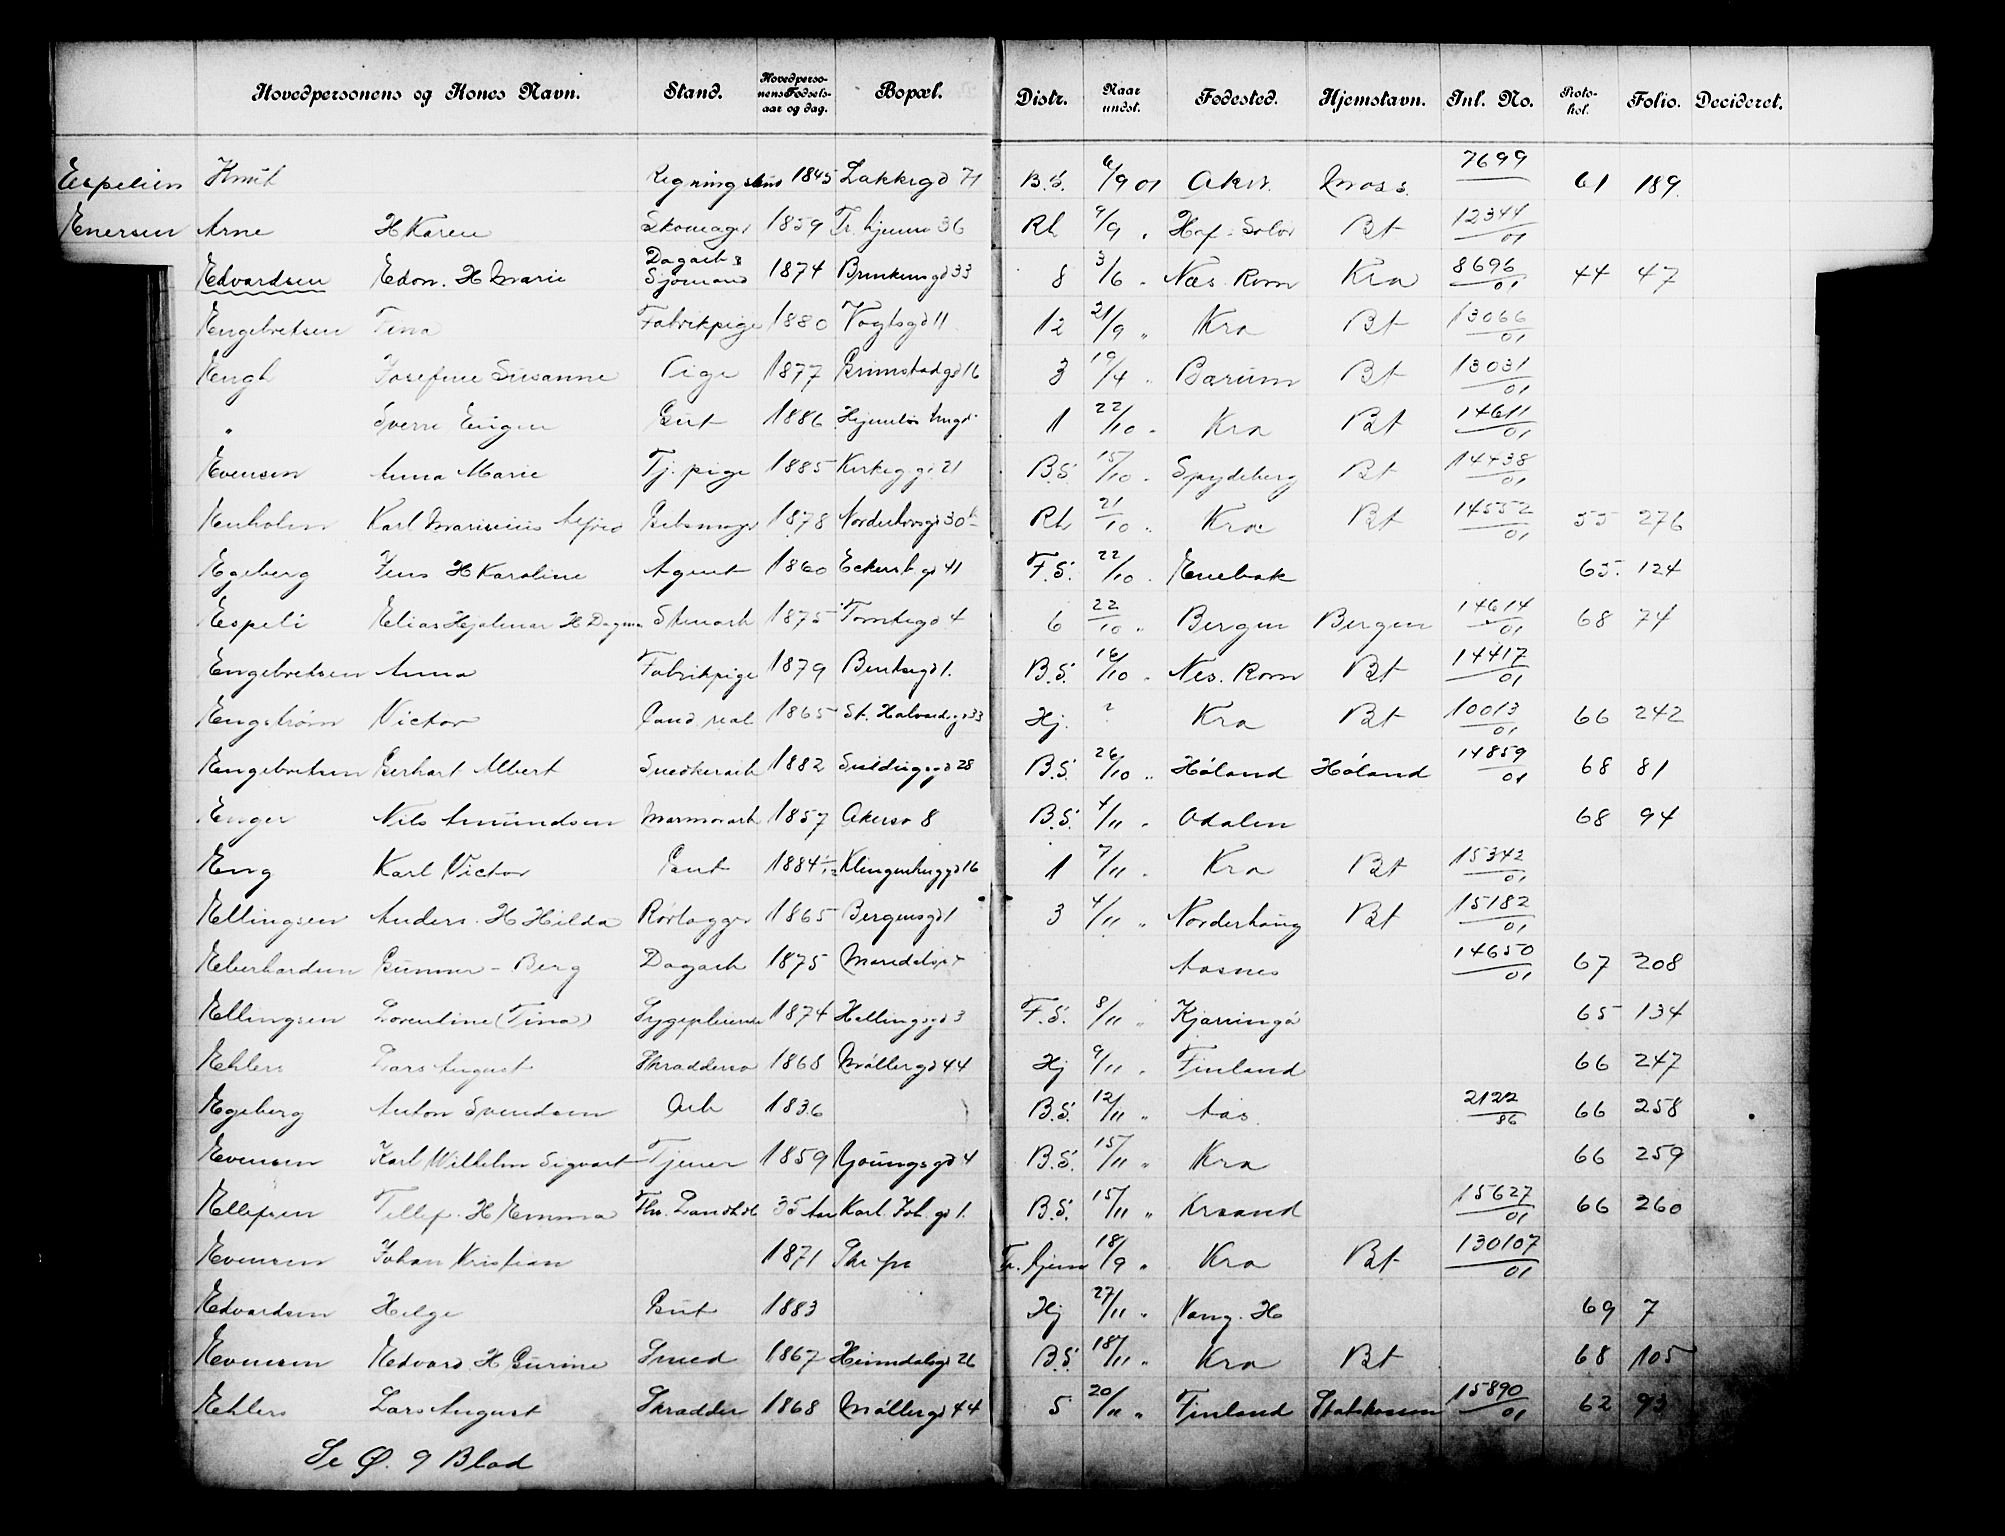 Hovedpersonens og Kones Navn. Stand. Hovedpersonens Fødselsaar og dag. Bopæl. Distr. Naar undst. Fødested. Hjemstavn. Inl. No. Protokol. Folio. Decideret.
Espelien Knut 1845 Lakkegd 71 B.S. 6/9 01 Aker Moss 7699 61 189
Enersen Arne H Karen Skomager 1859 Tr. hjem 36 Rh 9/9 " Hof Solør Bt 12344/01
Edvardsen Edv. H Marie Dagarb & Sjømand 1874 8 3/6 " Næs. Rom Kra 8696/01 44 47
Engebretsen Tina Fabrikpige 1880 Vogtsgd 11 12 21/9 " Kra Bt 13066/01
Engh Josefine Susanne Pige 1877 Grimstadgd 16 3 19/4 " Bærum Bt 13031/01
" Sverre Eugen Gut 1886 1 22/10 " Kra Bt 14611/01
Evensen Anna Marie Tj. pige 1885 Kirkeg. gd. 21 B.S. 15/10 " Spydeberg Bt 14438/01
Karl Marinius Alfred 1878 Norderhovsgd 30 b Rh 21/10 " Kra Bt 14552/01 55 276
Egeberg Jens H Karoline Agent 1860 Eckersb gd 41 F.S. 22/10 " Enebak 65 124
Espeli Elias Hjalmar H Dagma Stenarb 1875 Tomtegd 4 6 22/10 " Bergen Bergen 14614/01 68 74
Engebretsen Anna Fabrikpige 1879 Bentsegd 1. B.S. 16/10 " Nes. Rom Bt 14417/01
Engstrøm Victor Cand. real 1865 St. Halvardsgd 33 Hj. ? Kra Bt 10013/01 66 242
Engebretsen Gerhart Albert Snedkerarb 1882 B.S. 26/10 " Høland Høland 14859/01 68 81
Enger Nils Amundsen Marmorarb 1857 Akersv 8 B.S. 4/11 " Odalen 68 94
Eng Karl Victor Gut 1884 Klingenberggd 16 1 7/11 " Kra Bt 15342/01
Ellingsen Anders. H Hilda Rørlægger 1865 Bergensgd 1 3 4/11 " Norderhaug Bt 15182/01
Eberhardsen Gunnar - Berg Dagarb 1875 Aasnes 14650/01 67 208
Ellingsen Lorentine (Tina) Sygepleierske 1874 Hallingsgd 3 F.S. 8/11 " Kjærringø 65 134
Ehlers Lars August 1868 Møllergd 44 Hj 9/11 " Finland 66 247
Egeberg Anton Svendsen Arb 1836 B.S. 12/11 " Aas 2122/86 66 258
Evensen Karl Wilhelm Sigvart Tjener 1859 Youngsgd 4 B.S. 15/11 " Kra 66 259
Ellefsen Tellef. H Emma Fhv. Landhdl 35 Aar Karl. Joh. gd 1. B.S. 15/11 " Krsand 15627/01 66 260
Evensen Johan Kristian 1871 Tr. hjem 18/9 " Kra Bt 130107/01
Edvardsen Helge Gut 1883 Hj 27/11 " Vang. H 69 7
Evensen Edvard H Gurine Smed 1867 Heimdalsgd 26 B.S. 18/11 " Kra Bt 68 105
Ehlers Lars August Skrædder 1868 Møllergd 44 5 20/11 " Finland Statskassen 15890/01 62 93
Se Ø. 9 Blad